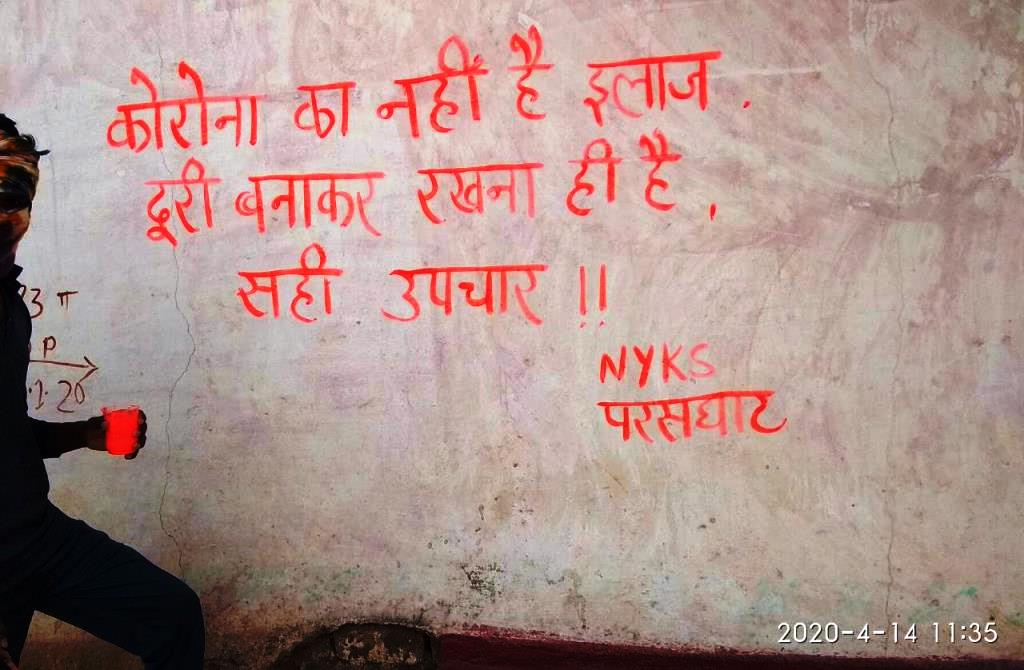 कोरोना का नहीं है इलाज .
दूरी बनाकर रखना ही है ,
सही उपचार !!
NYKS
परसघाट
3 π
P
20
2020-4-14 11:35